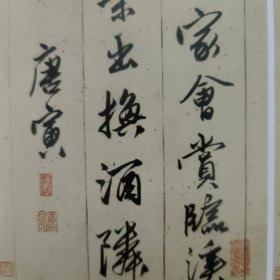 家會賞臨溪
出撫酒隣
唐寅